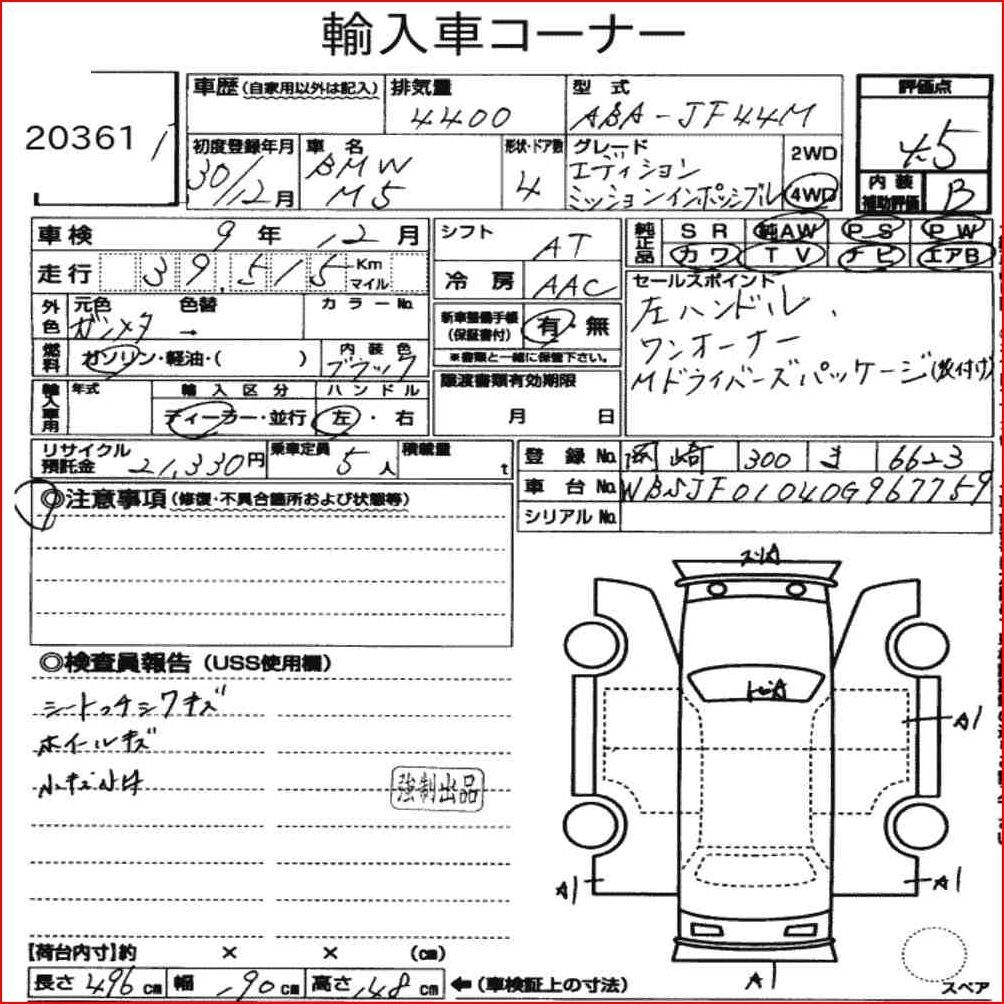 輸入車コーナー
20361
車歴 (自家用以外は記入) 排気量 型式 評価点
4400 ABA-JF44M 4.5
初度登録年月 車名 形状・ドア数 グレード 2WD
30/12月 BMW M5 4 エディション ミッションインポッシブル 4WD
内装補助評価 B
車検 9年 12月 シフト AT
走行 39,515 Km マイル 冷房 AAC
純正品 SR 純AW PS PW
カワ TV ナビ エアB
外色 元色 色替 カラーNo.
ガンメタ →
新車整備手帳 (保証書付) 有・無
※書類と一緒に保管下さい。
セールスポイント
左ハンドル、
ワンオーナー
Mドライバーズパッケージ(後付け)
燃料 ガソリン・軽油・( ) 内装色 ブラック
譲渡書類有効期限
月 日
輸入車用 年式 輸入区分 ハンドル
ディーラー・並行 左・右
リサイクル預託金 21,330円 乗車定員 5人 積載量 t
登録No. 岡崎 300 ま 6623
車台No. WBSJF01040G967759
シリアルNo.
◎注意事項 (修復・不具合箇所および状態等)
◎検査員報告 (USS使用欄)
シートっチシワキズ
ホイールキズ
小キズ小凹
強制出品
スリA
トビA
A1
A1
A1
A1
【荷台内寸】約 × × (cm)
長さ 496 cm 幅 190 cm 高さ 148 cm ←(車検証上の寸法)
スペア